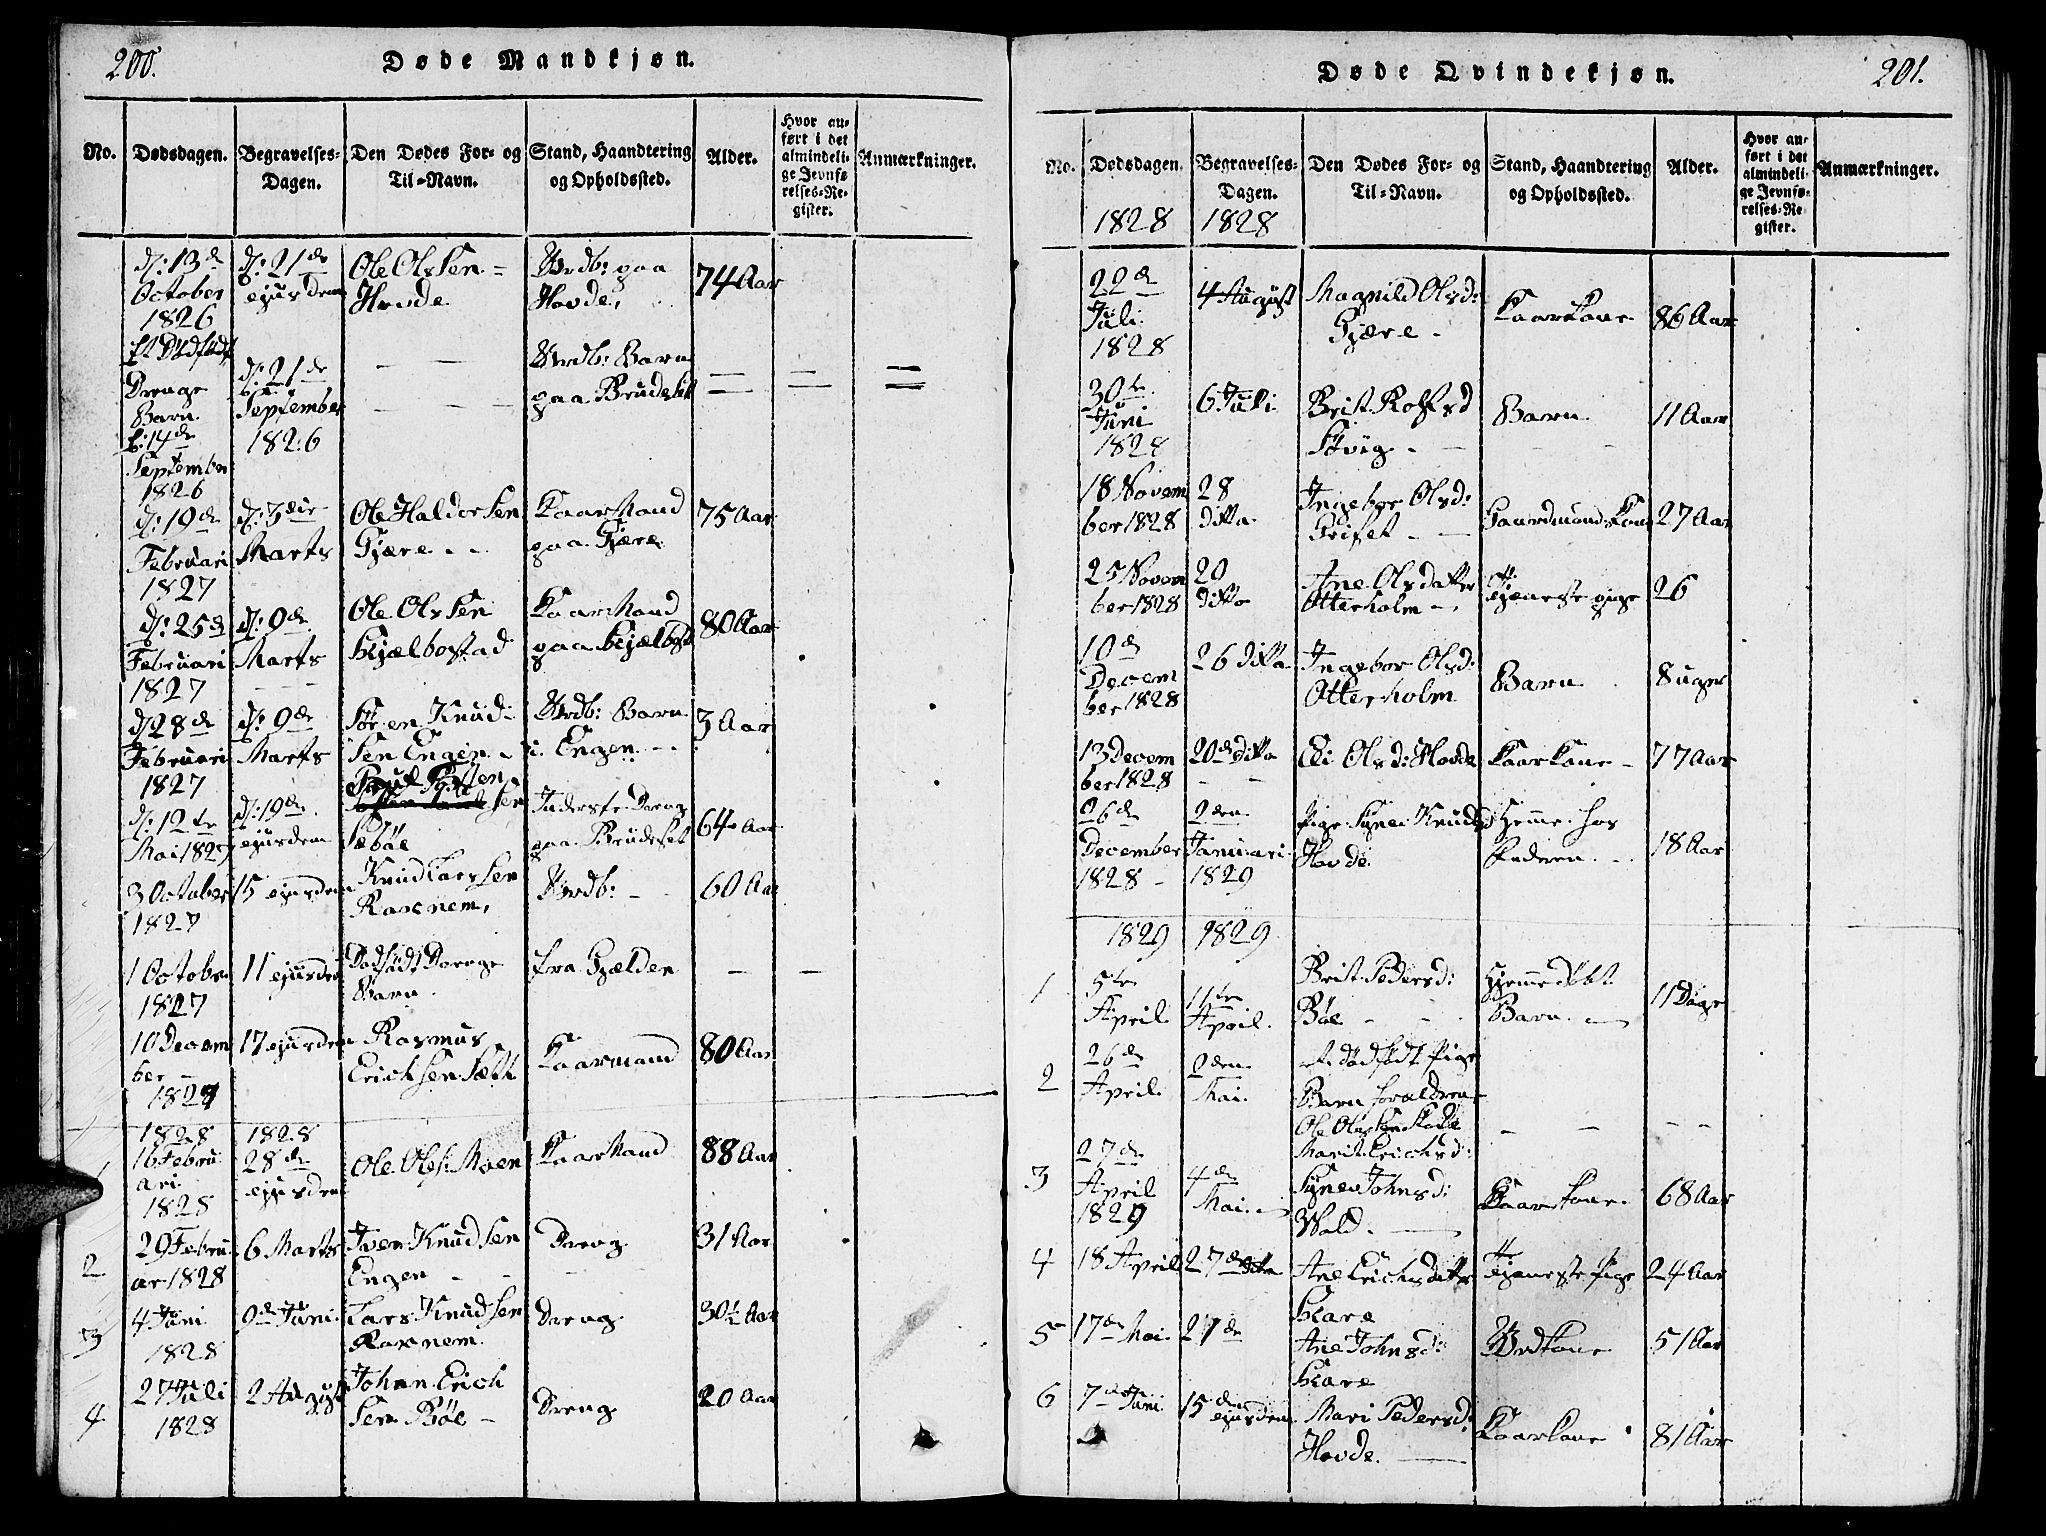 200.
Døde Mandkjøn.
No.
Dødsdagen.
Begravelses-
Dagen.
Den Dødes For- og
Til-Navn.
Stand, Haandtering
og Opholdssted.
Alder.
Hvor an-
ført i det
almindeli-
ge Jevnfø-
relses-Re-
gister.
Anmærkninger.
d: 13de
October
1826
d: 21de
ejusdem
Ole Olssen
Hovde
paa
Hovde,
74 Aar
Et Dødfødt
Drenge
Barn
d: 14de
September
1826
d: 21de
September
1826
Barn
paa Brudeset
d: 19de
Februari
1827
d: 3die
Marts
Ole Haldorsen
Gjære
Kaarmand
paa Gjære
75 Aar
d: 25de
Februari
1827
d: 9de
Marts
Ole Olssen
Skjælbostad
Kaarmand
paa Skjælbost
80 Aar
d 28de
Februari
1827
d: 9de
Marts
Søren Knud-
sen Engen
Barn
i Engen
3 Aar
d: 12te
Mai 1827
d: 19de
ejusdem
Knud Tosten
sen
Sæbøe
Inderste Dreng
paa Brudeset
64 Aar
3 October
1827
15 ejusdem
Knud Larssen
Ravnem,
60 Aar
1 October
1827
11 ejusdem
Dødfødt Drenge
Barn
fra Gjælden
10 Decem
ber
1827
17 ejusdem
Rasmus
Erichsen Sætt
Kaarmand
80 Aar
1828
1828
1
16 Febru
ari
1828
28de
ejusdem
Ole Ols: Moen
Kaarmand
88 Aar
2
29 Febru
ar 1828
6 Marts
Iver Knudsen
Engen
Dreng
31 Aar
3
4 Juni
1828
9de Juni
Lars Knudsen
Ravnem
Dreng
30½ Aar
4
27 Juli
1828
2 August
Johan Erich
sen Böe
Dreng
20 Aar
Døde Qvindekjøn.
201.
No.
Dødsdagen.
Begravelses-
Dagen.
Den Dødes For- og
Til-Navn.
Stand, Haandtering
og Opholdssted.
Alder.
Hvor an-
ført i det
almindeli-
ge Jevnfø-
relses-Re-
gister.
Anmærkninger.
1828
1828
22de
Juli
1828
4 August
Magnild Olsd:
Gjære
Kaarkone
86 Aar
30te
Juni
1828
6 Juli
Brit Rolfsd
Barn
11 Aar
18 Novem
ber 1828
28
ditto
Ingebor Olsd:
Grifset
Gaardmands Kone
27 Aar
25 Novem
ber 1828
20
ditto
Ane Olsdatter
Otterholm
Tjeneste pige
26
10de
Decem
ber 1828
26 ditto
Ingebor Olsd:
Otterholm
Barn
8 uger
13 Decem
ber 1828
20de ditto
Eli Olsd: Hovde
Kaarkone
77 Aar
26de
December
1828
2den
Januari
1829
Pige Synev Knudsd
Hovde
Hjemme hos
Faderen
18 Aar
1829
1829
1
5te
April
11te
April
Brit Pedersd:
Böe
Hjemmedøbt
Barn
11 Dage
2
26de
April
2den
Mai
et dødfødt Pige
Barn foraldren
Ole Olessen
Marit Erichsd:
3
27de
April
1829
4de
Mai
Synev Johnsd:
Wold
Kaarkone
68 Aar
4
18 April
27de ditto
Ane Erichsdatter
Hare
Tjeneste Pige
24 Aar
5
17de Mai
27de
Ane Johnsd:
Hare
51 Aar
6
7de Juni
15den
ejusdem
Mari Pedersd:
Hovde
Kaarkone
81 Aar